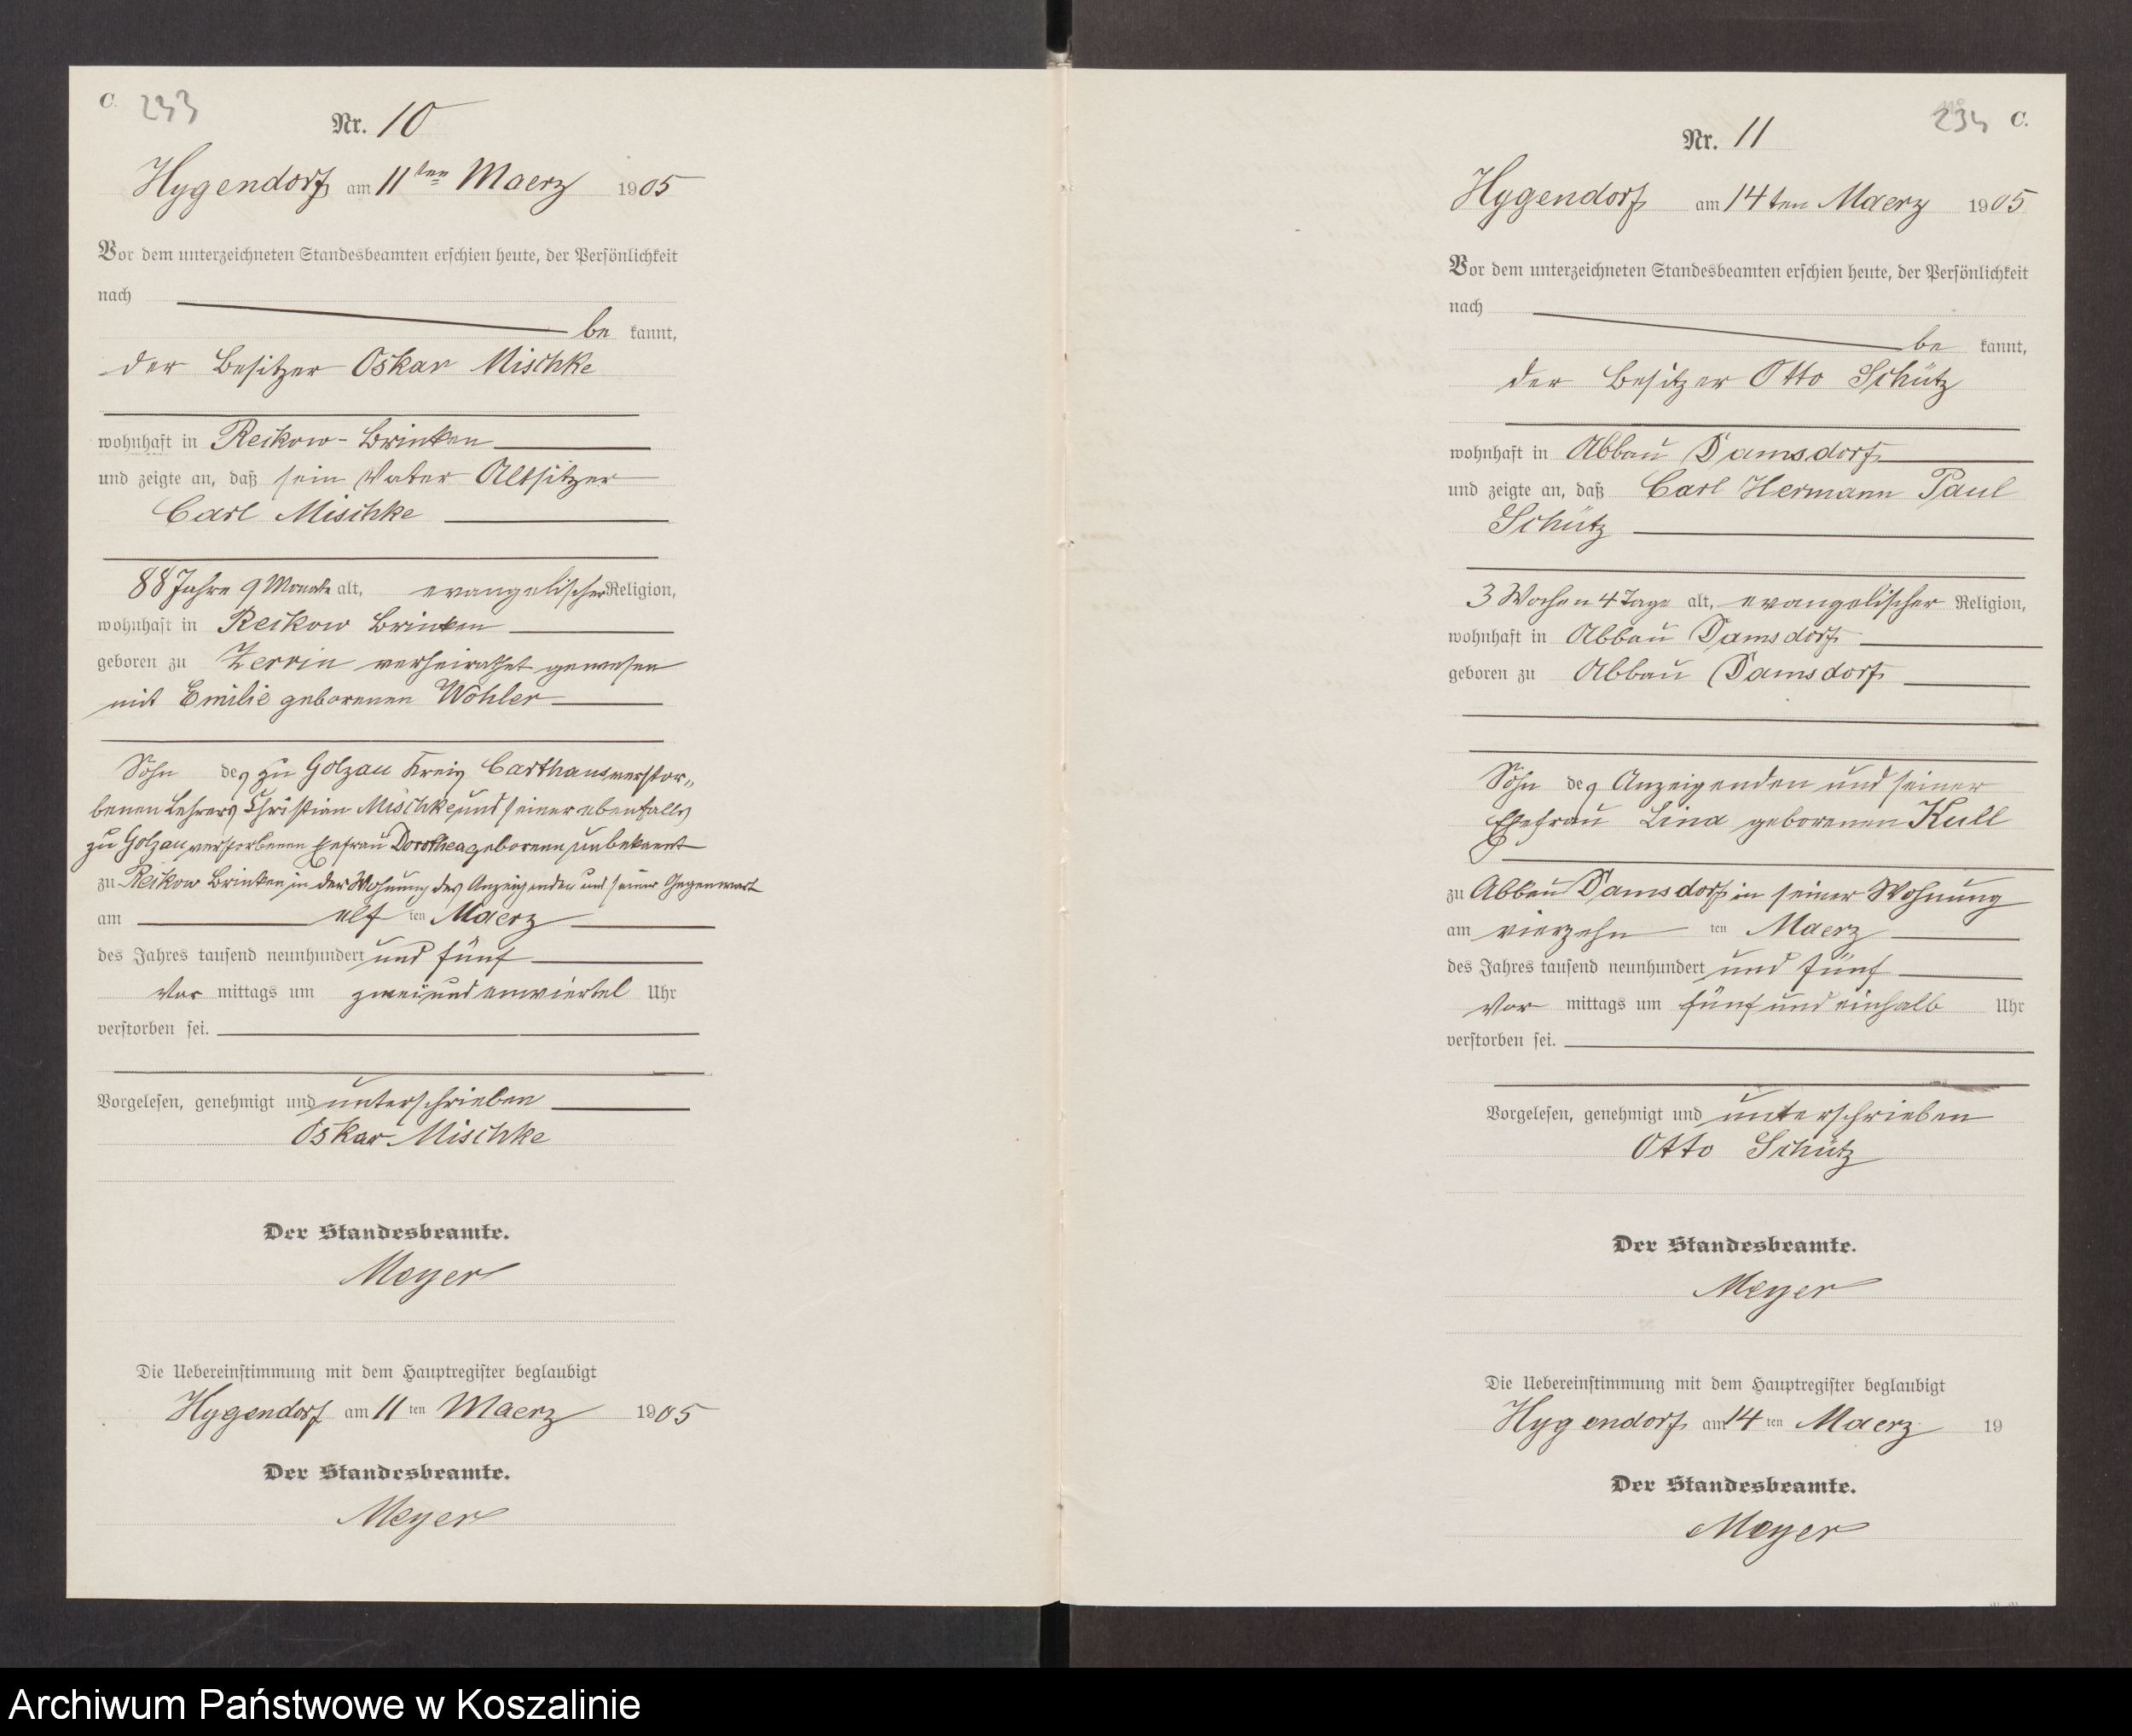 C. 233
Nr. 10
Hygendorf am 11ten Maerz 1905
Vor dem unterzeichneten Standesbeamten erschien heute, der Persönlichkeit
nach
be kannt,
der Besitzer Oskar Mischke
wohnhaft in Reikow-Brinken
und zeigte an, daß sein Vater Altsitzer
Carl Mischke
88 Jahre 9 Monate alt, evangelischer Religion,
wohnhaft in Reikow Brinken
geboren zu Zerrin verheirathet gewesen
mit Emilie geborenen Wöhler
Sohn des zu Golzau Kreis Carthaus verstor„
benen Lehrers Christian Mischke und seiner ebenfalls
zu Golzau verstorbenen Ehefrau Dorothea geborene unbekannt
zu Reikow Brinken in der Wohnung des Anzeigenden und seiner Gegenwart
am elf ten Maerz
des Jahres tausend neunhundert und fünf
Vor mittags um zwei und einviertel Uhr
verstorben sei.
Vorgelesen, genehmigt und unterschrieben
Oskar Mischke
Der Standesbeamte.
Meyer
Die Uebereinstimmung mit dem Hauptregister beglaubigt
Hygendorf am 11 ten Maerz 1905
Der Standesbeamte.
Meyer
234 C.
Nr. 11
Hygendorf am 14ten Maerz 1905
Vor dem unterzeichneten Standesbeamten erschien heute, der Persönlichkeit
nach
be kannt,
der Besitzer Otto Schütz
wohnhaft in Abbau Damsdorf
und zeigte an, daß Carl Hermann Paul
Schütz
3 Wochen 4 Tage alt, evangelischer Religion,
wohnhaft in Abbau Damsdorf
geboren zu Abbau Damsdorf
Sohn des Anzeigenden und seiner
Ehefrau Lina geborenen Kull
zu Abbau Damsdorf in seiner Wohnung
am vierzehn ten Maerz
des Jahres tausend neunhundert und fünf
Vor mittags um fünf und einhalb Uhr
verstorben sei.
Vorgelesen, genehmigt und unterschrieben
Otto Schütz
Der Standesbeamte.
Meyer
Die Uebereinstimmung mit dem Hauptregister beglaubigt
Hygendorf am 14 ten Maerz 19
Der Standesbeamte.
Meyer
Archiwum Państwowe w Koszalinie